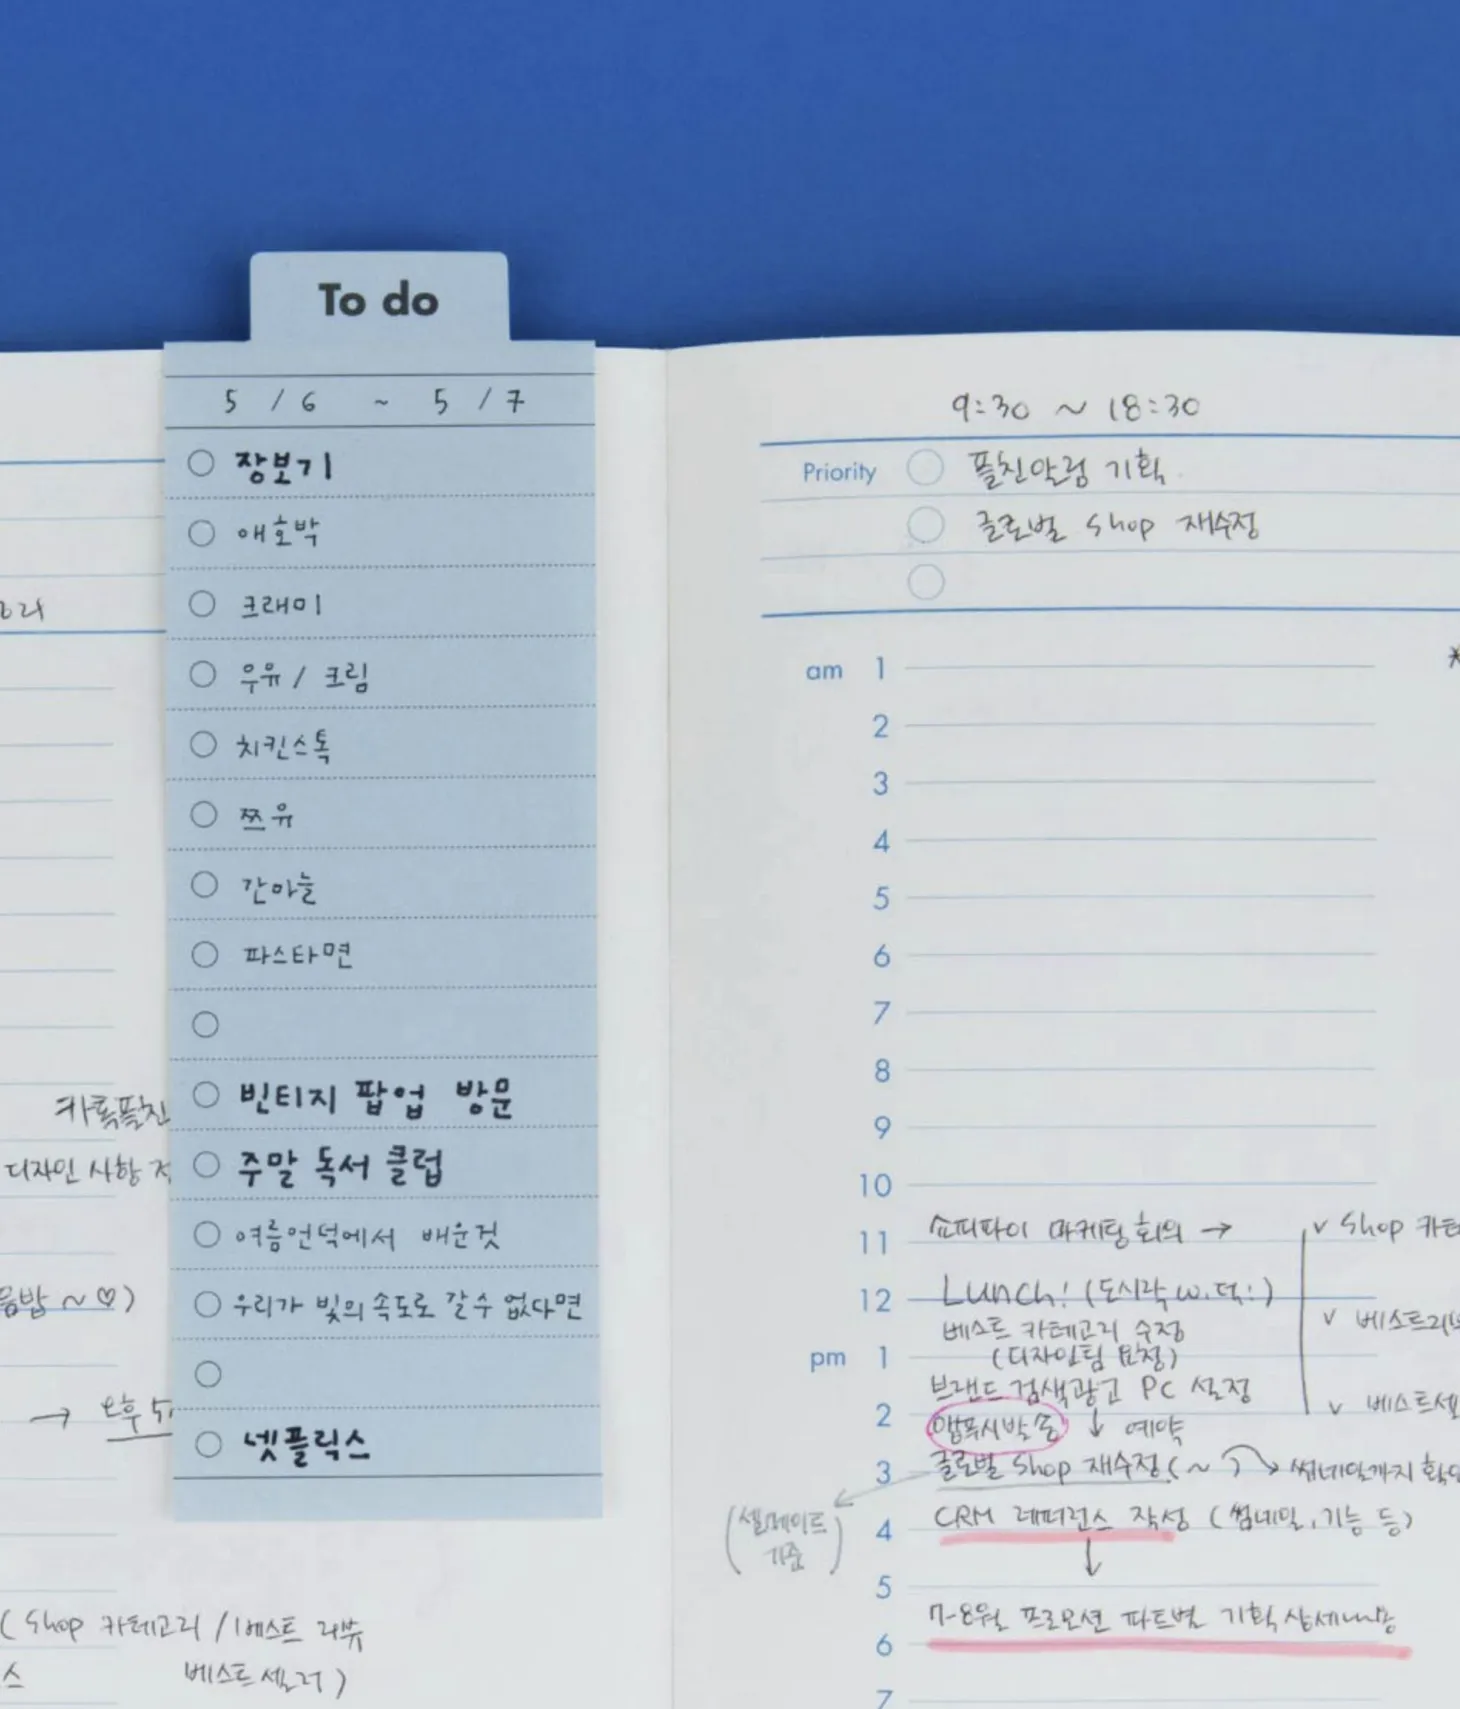 To do
5 / 6 ~ 5 / 7
장보기
애호박
크래미
우유 / 크림
치킨스톡
쯔유
간마늘
파스타면
빈티지 팝업 방문
주말 독서 클럽
여름언덕에서 배운것
우리가 빛의 속도로 갈 수 없다면
넷플릭스
카톡플친
디자인 사항
~ ♡)
→ 오후
( Shop 카테고리 / 베스트 리뷰
스 베스트셀러 )
9:30 ~ 18:30
Priority 플친알림 기획
글로벌 Shop 재수정
*
am 1
2
3
4
5
6
7
8
9
10
11 쇼피파이 마케팅 회의 → v Shop
12 Lunch! (도시락 w.덕!)
베스트 카테고리 수정 v
pm 1 (디자인팀 요청)
브랜드 검색광고 PC 설정
2 앱푸시발송 ↓ 예약 v
3 글로벌 Shop 재수정 ( ~ ) 썸네일까지
(셀메이트 기준)
4 CRM 레퍼런스 작성 (썸네일, 기능 등)
↓
5
6 7-8월 프로모션 파트별 기획
7